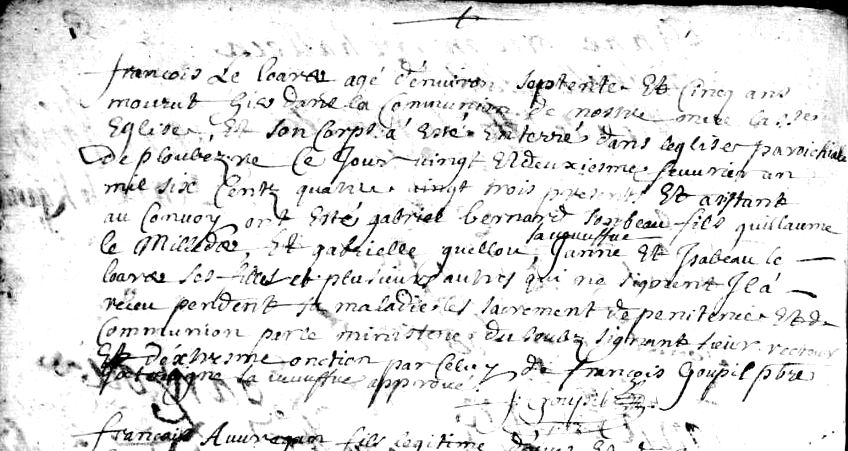 françois Le loarer agé d'environ septente Et Cincq ans
mourut hier dans la Communion de nostre mere la ste
Eglise, Et son Corps a Esté Enterré dans leglise paroichiale
de ploubezre Ce Jour vingt Et deuxiesme feuvrier an
mil six Centz quattre vingt trois presents Et asistant
au Convoy ont Estés gabriel bernard son beau fils guillaume
sa veuffve
le Milledé Et gabrielle quellou, Janne Et Isabeau le
loarer ses filles et plusieurs autres qui ne signent Il a
receu pendent sa maladie les sacrement de penitence Et de
Communion par le ministere du soubz signant sieur recteur
Et d'éxtresme onction par Celuy de françois Goupil pbre
interligne sa veuffve approuvé
f: Goupil
françois fils legitime